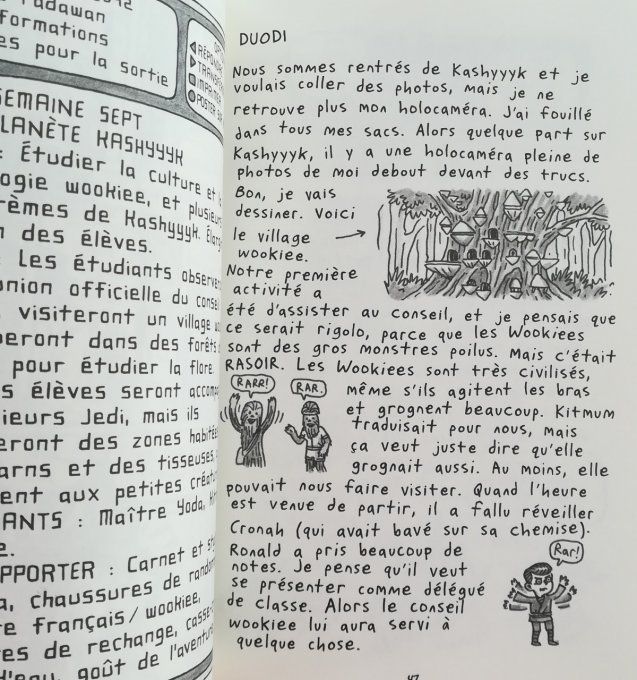 adawan
formations
es pour la sortie
SEMAINE SEPT
PLANÈTE KASHYYYK
: Étudier la culture et
ogie wookiee, et plusieurs
rèmes de Kashyyyk.
n des élèves.
Les étudiants observe
union officielle du conse
visiteront un village
peront dans des forêts
pour étudier la flore
s élèves seront accom
sieurs Jedi, mais ils
eront des zones habitée
arns et des tisseuses
ent aux petites créatu
ANTS : Maître Yoda,
PPORTER : Carnet et
a, chaussures de rando
re français/wookiee,
es de rechange, casse
d'eau, goût de l'aventur
DUODI
Nous sommes rentrés de Kashyyyk et je
voulais coller des photos, mais je ne
retrouve plus mon holocaméra. J'ai fouillé
dans tous mes sacs. Alors quelque part sur
Kashyyyk, il y a une holocaméra pleine de
photos de moi debout devant des trucs.
Bon, je vais
dessiner. Voici
le village
wookiee.
Notre première
activité a
été d'assister au conseil, et je pensais que
ce serait rigolo, parce que les Wookiees
sont des gros monstres poilus. Mais c'était
RASOIR. Les Wookiees sont très civilisés,
RARR!
RAR.
même s'ils agitent les bras
et grognent beaucoup. Kitmum
traduisait pour nous, mais
ça veut juste dire qu'elle
grognait aussi. Au moins, elle
pouvait nous faire visiter. Quand l'heure
est venue de partir, il a fallu réveiller
Cronah (qui avait bavé sur sa chemise).
Ronald a pris beaucoup de
notes. Je pense qu'il veut
se présenter comme délégué
de classe. Alors le conseil
wookiee lui aura servi à
quelque chose.
Rar!
47